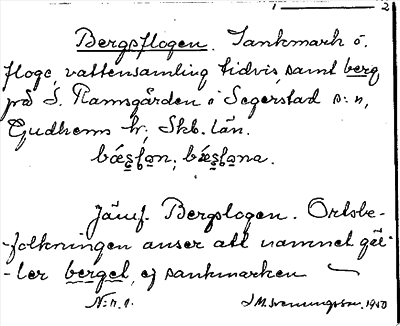 1 ———— 2
Bergsflogen. Sankmark o.
floge, vattensamling tidvis, samt berg
på S. Ramsgården i Segerstad s:n,
Gudhems hr, Skb. län.
Jämf. Bergslogen. Ortsbe-
-folkningen anser att namnet gäl-
-ler berget, ej sankmarken
N:r 1. 1950